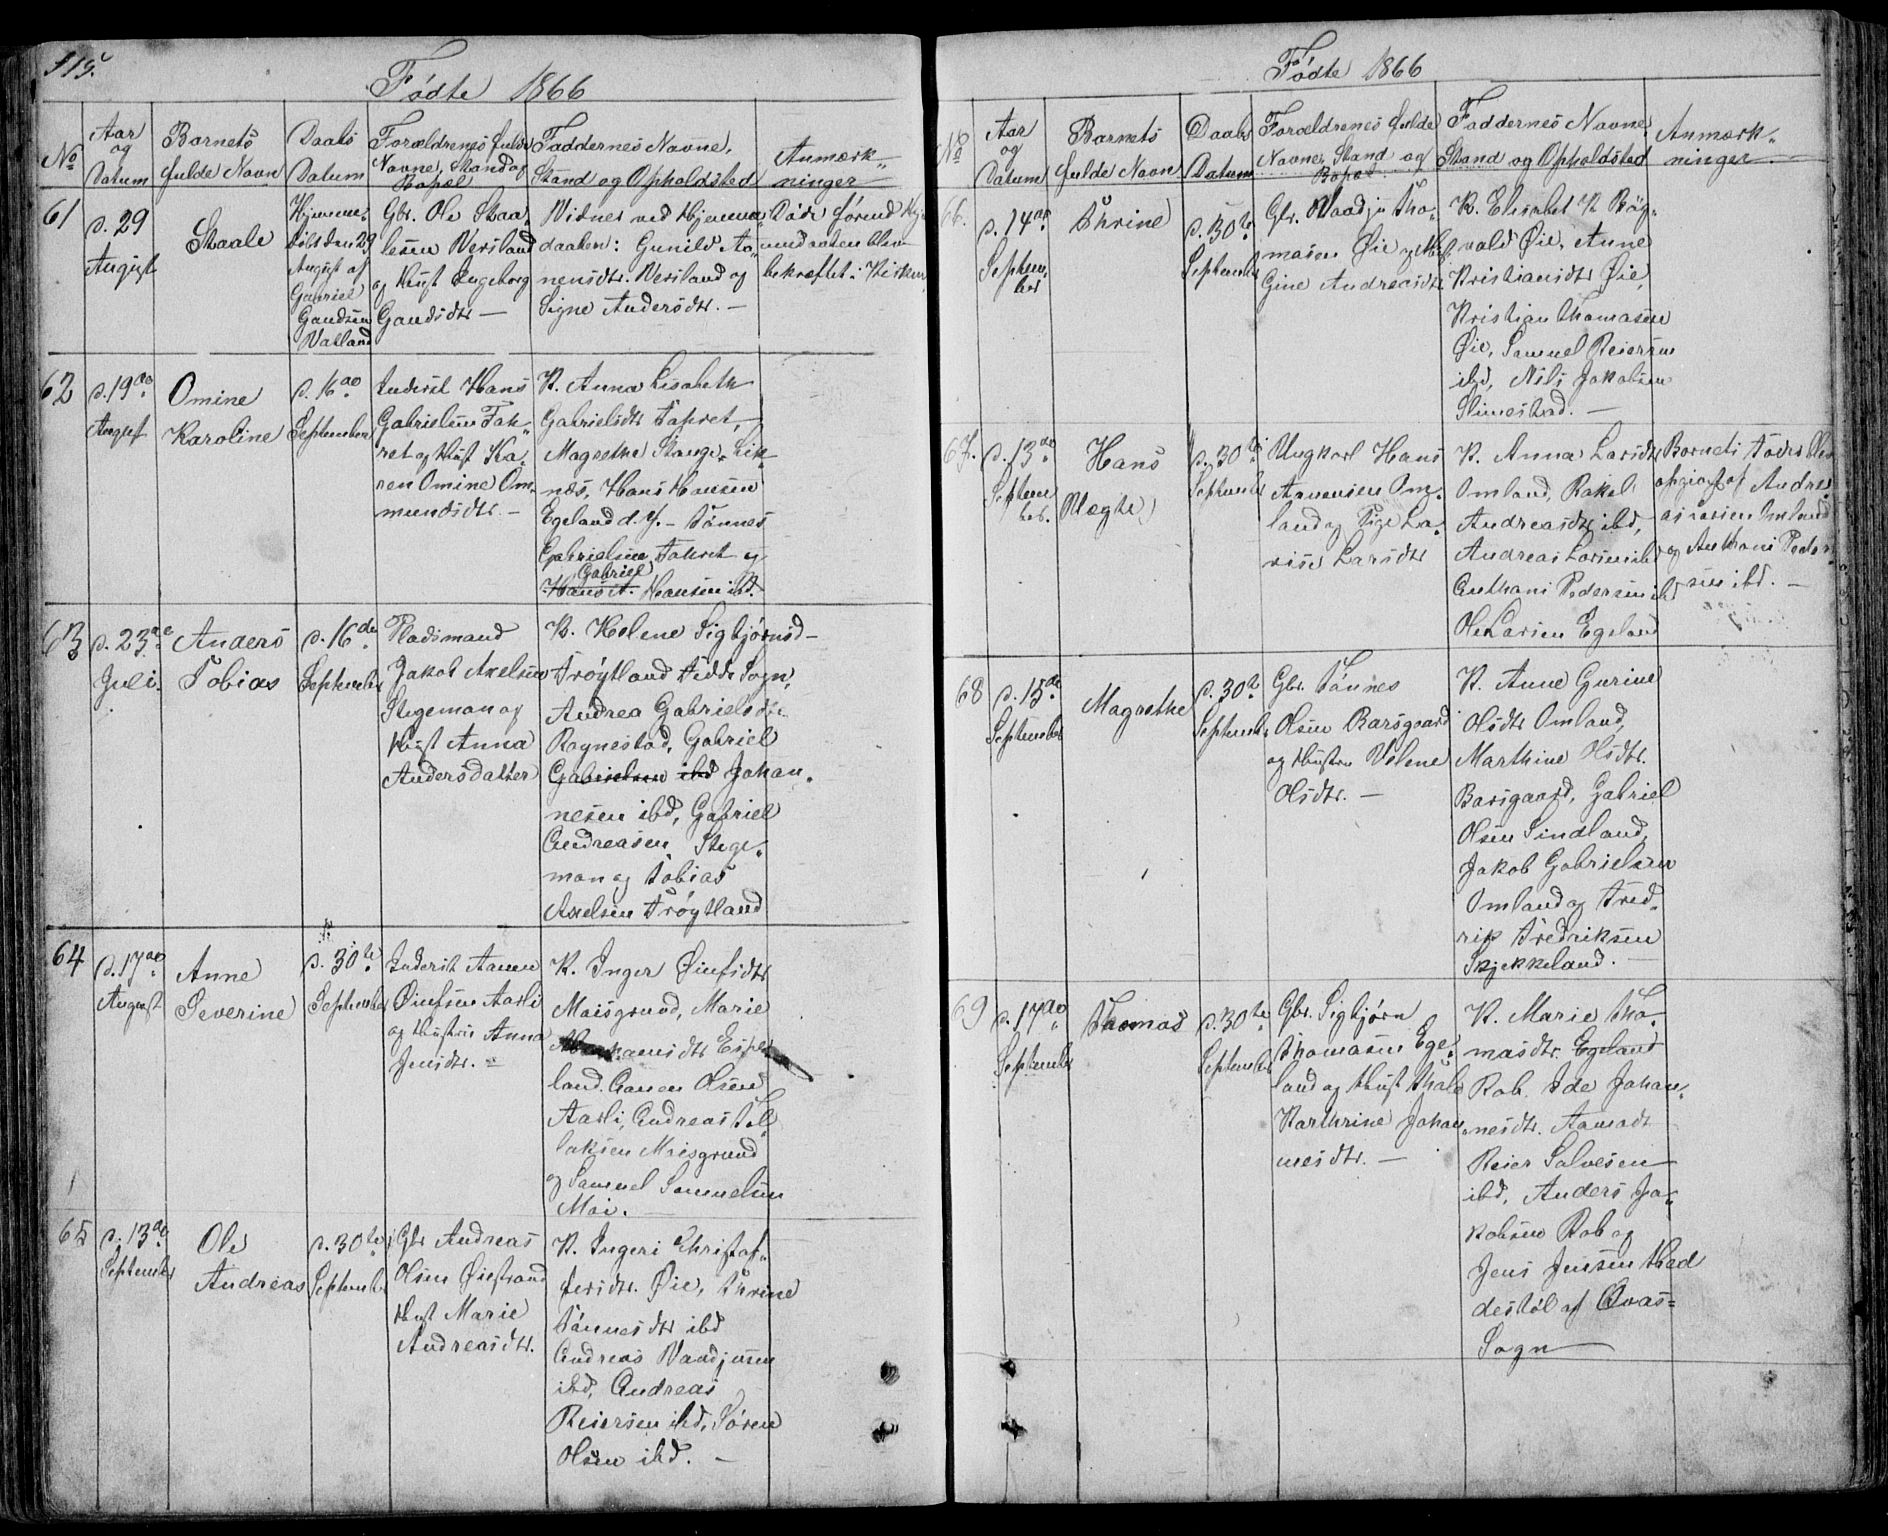 115.
Fødte 1866
No
Aar og Datum
Barnets fulde Navn
Daabs Datum
Forældrenes fulde Navne, Stand og Bopæl
Faddernes Navne, Stand og Opholdsted
Anmærkninger
61
d. 29
August
Staale
Hjemme-
døbt den 29
August af
Gabriel
Gaudsen
Valland
Gbr. Ole Staa
lesen Versland
og Hust Ingeborg
Gaudsdtr —
Vidner ved Hjemme-
daaben: Gunild Aa-
nensdtr. Versland og
Signe Andersdtr. —
Døde førend
daaben blev
bekræftet i Kirken
62
d. 19de
August
Omine
Karoline
d. 16de
September
Inderst Hans
Gabrielsen Fah-
ret og Hust Ka-
ren Omine Om-
mundsdtr. —
K. Anna Lisabeth
Gabrielsdtr Fahret, —
Magrethe Stange Lik-
næs, Hans Hansen
Egeland d. y. — Tønnes
Gabrielsen Fahret og
Gabriel
Hans A. Hansen ibd.
63
d. 23de
Juli
Anders
Tobias
d. 16de
September
Pladsmand
Jakob Axelsen
Stegeman og
Hust Anna
Andersdatter
K. Helene Sigbjørnsd —
Trøytland Fedde Sogn,
Andrea Gabrielsdtr
Ragnestad, Gabriel
Gabrielsen ibd Johan-
nesen ibd, Gabriel
Andreasen Stege-
man og Tobias
Axelsen Trøytland
64
d. 17de
August
Anne
Severine
d. 30te
September
Inderst Aanen
Øiufsen Aarli
og Hustru Anna
Jensdtr. —
K. Inger Øiufsdtr
Moisgrund, Marie
Abrahamsdtr Espe-
land. Aanen Olsen
Aarli, Andreas Tol-
laksen Moisgrund
og Samuel Samuelsen
Moi. —
65
d. 13de
September
Ole
Andreas
d. 30te
September
Gbr Andreas
Olsen Øiestrand
Hust Marie
Andreasdtr.
K. Ingeri Christof-
fersdtr. Øie, Thrine
Tønnesdtr ibd
Andreas Vaadjusen
ibd, Andreas
Reiersen ibd, Søren
Olsen ibd. —
Fødte 1866
No
Aar og Datum
Barnets fulde Navn
Daabs Datum
Forældrenes fulde Navne, Stand og Bopæl
Faddernes Navne, Stand og Opholdsted
Anmærkninger
66.
d. 14de
September
Thrine
d. 30te
September
Gbr. Vaadju Tho-
masen Øie og Hust
Gine Andreasdtr
K. Elisabet K Røg-
vald Øie, Anne
Kristiansdtr Øie,
Kristian Thomasen
Øie, Samuel Reiersen
ibd, Nils Jakobsen
Slimestad. —
67.
d. 13de
September.
Hans
Magte
d. 30te
September
Ungkarl Hans
Aanensen Om-
land og Pige La-
vise Larsdtr
K. Anna Larsdtr
Omland, Rakel
Andreasdtr ibd,
Andreas Larsen ibd
Anthoni Pedersen ibd
Ole Larsen Egeland
Barnets Fader blev
opgivet af Andre-
as Larsen Omland
og Anthoni Peder-
sen ibd. —
68
d. 15de
September
Magrethe
d. 30te
September
Gbr. Tønnes
Olsen Barsgaard
og Hustru Velene
Olsdtr. —
K. Anne Gurine
Olsdtr Omland,
Marthine Olsdtr.
Barsgaard, Gabriel
Olsen Sindland,
Jakob Gabrielsen
Omland og Fred-
rik Fredriksen
Skjekkeland. —
69
d. 17de
September
Thomas
d. 30te
September
Gbr. Sigbjørn
Thomasen Ege-
land og Hust Thale
Karthrine Johan-
nesdtr. —
K. Marie Tho-
masdtr. Egeland
Rob. Ide Johan-
nesdtr. Aamodt
Reier Salvesen
ibd, Anders Ja-
kobsen Rob og
Jens Jensen Had
destøl af Qvas-
Sogn —